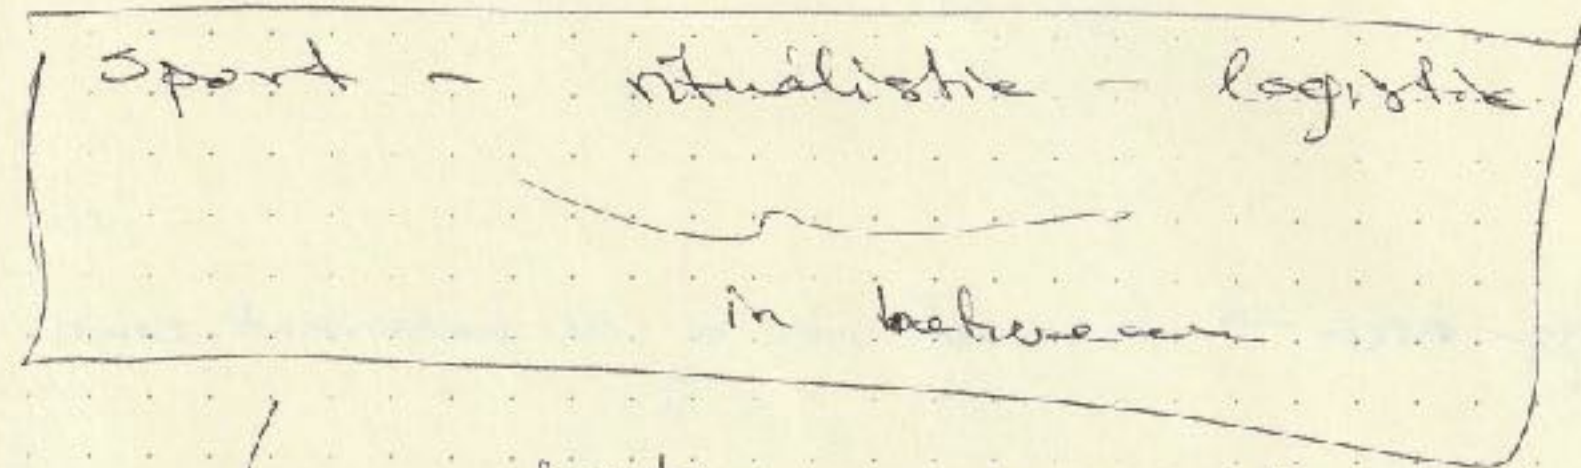 Sport - ritualistic - logistic
in between